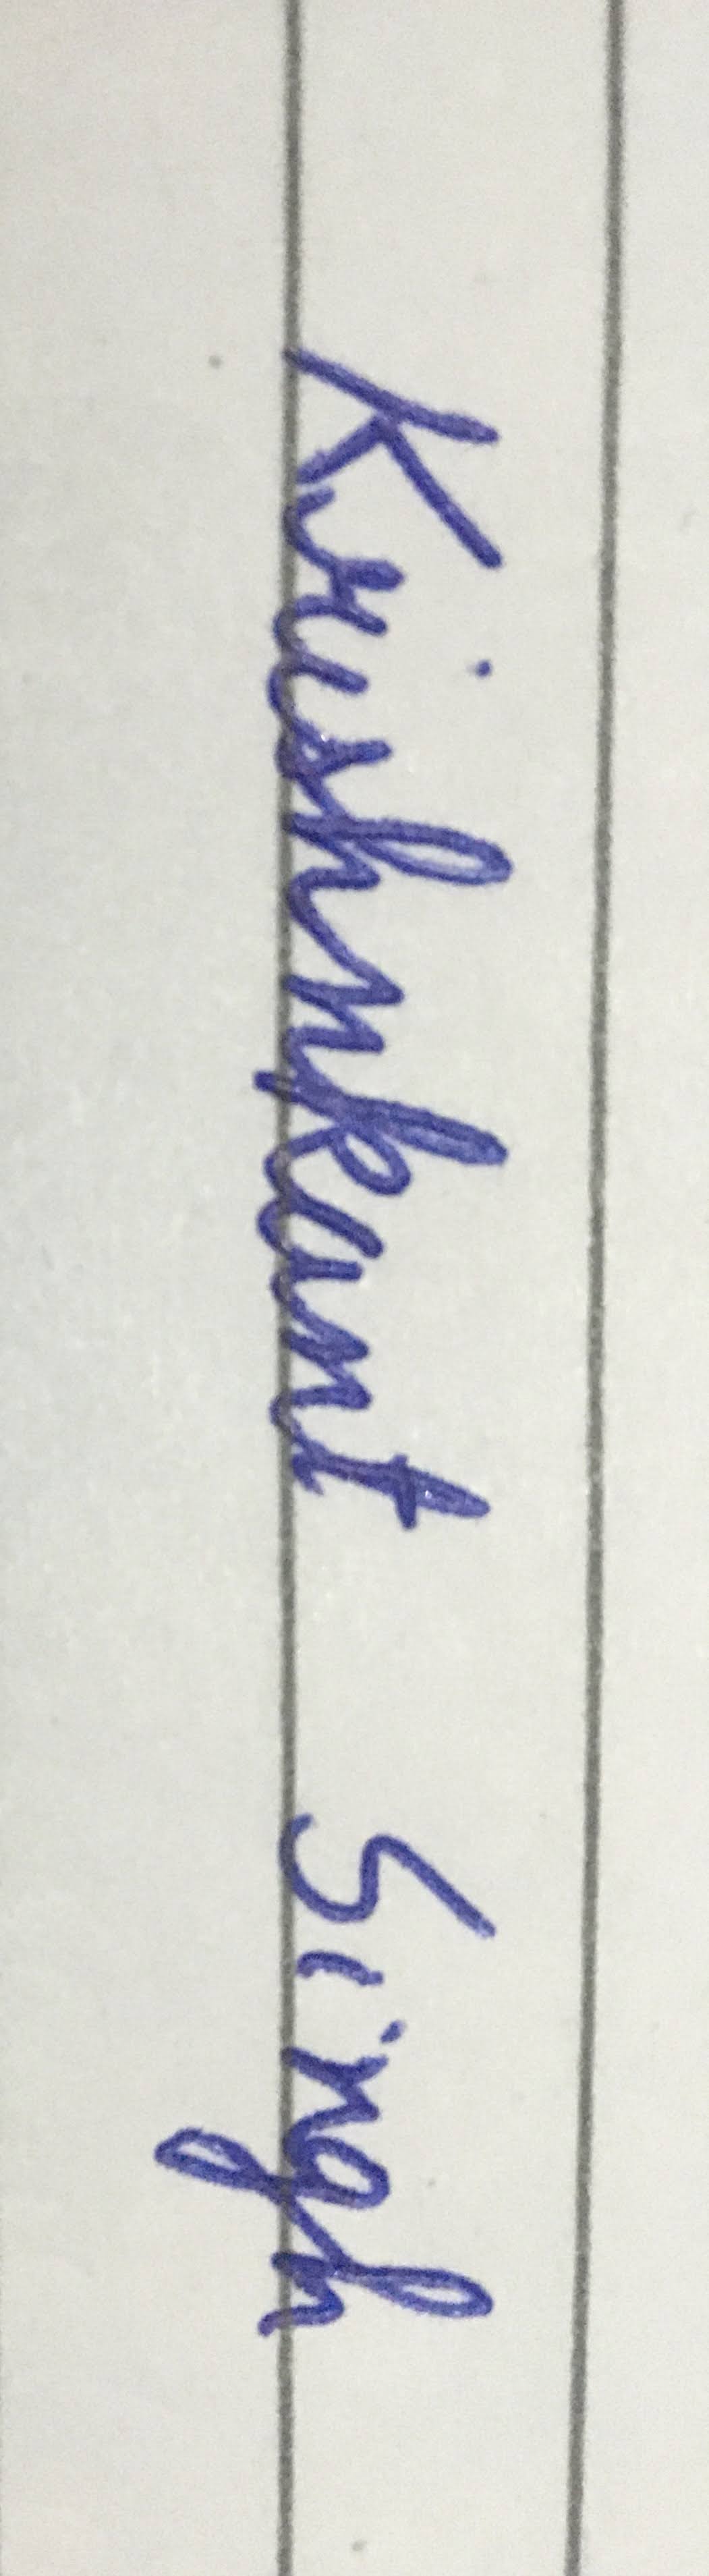 Krishnkant Singh